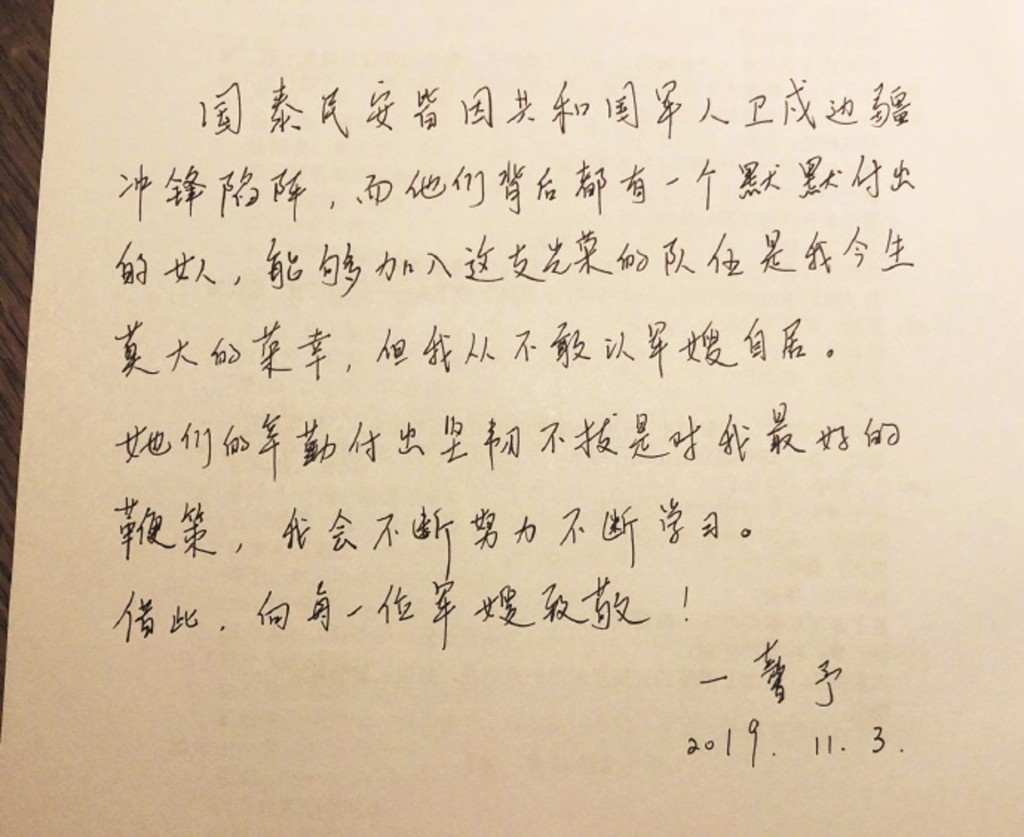 国泰民安皆因共和国军人卫戍边疆
冲锋陷阵,而他们背后都有一个默默付出
的女人,能够加入这支光荣的队伍是我今生
莫大的荣幸,但我从不敢以军嫂自居。
她们的辛勤付出坚韧不拔是对我最好的
鞭策,我会不断努力不断学习。
借此,向每一位军嫂致敬!
一 馨予
2019. 11. 3.